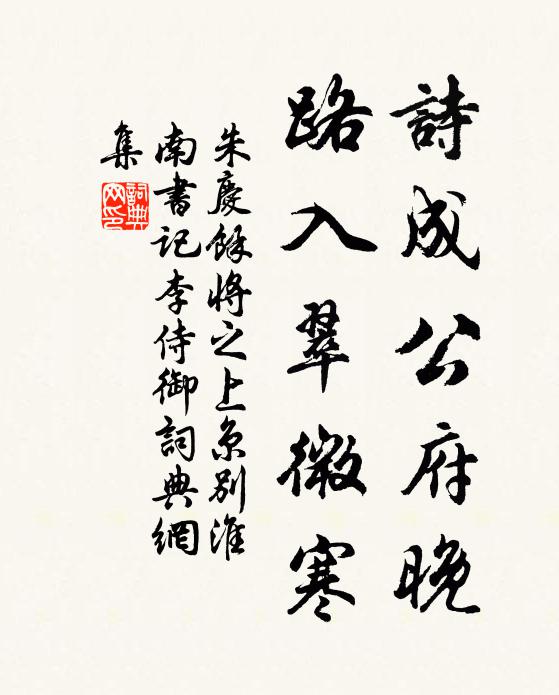 詩成公府晚
路入翠微寒
朱慶餘將之上京別淮
南書記李侍御詞典網
集
詞典
网印